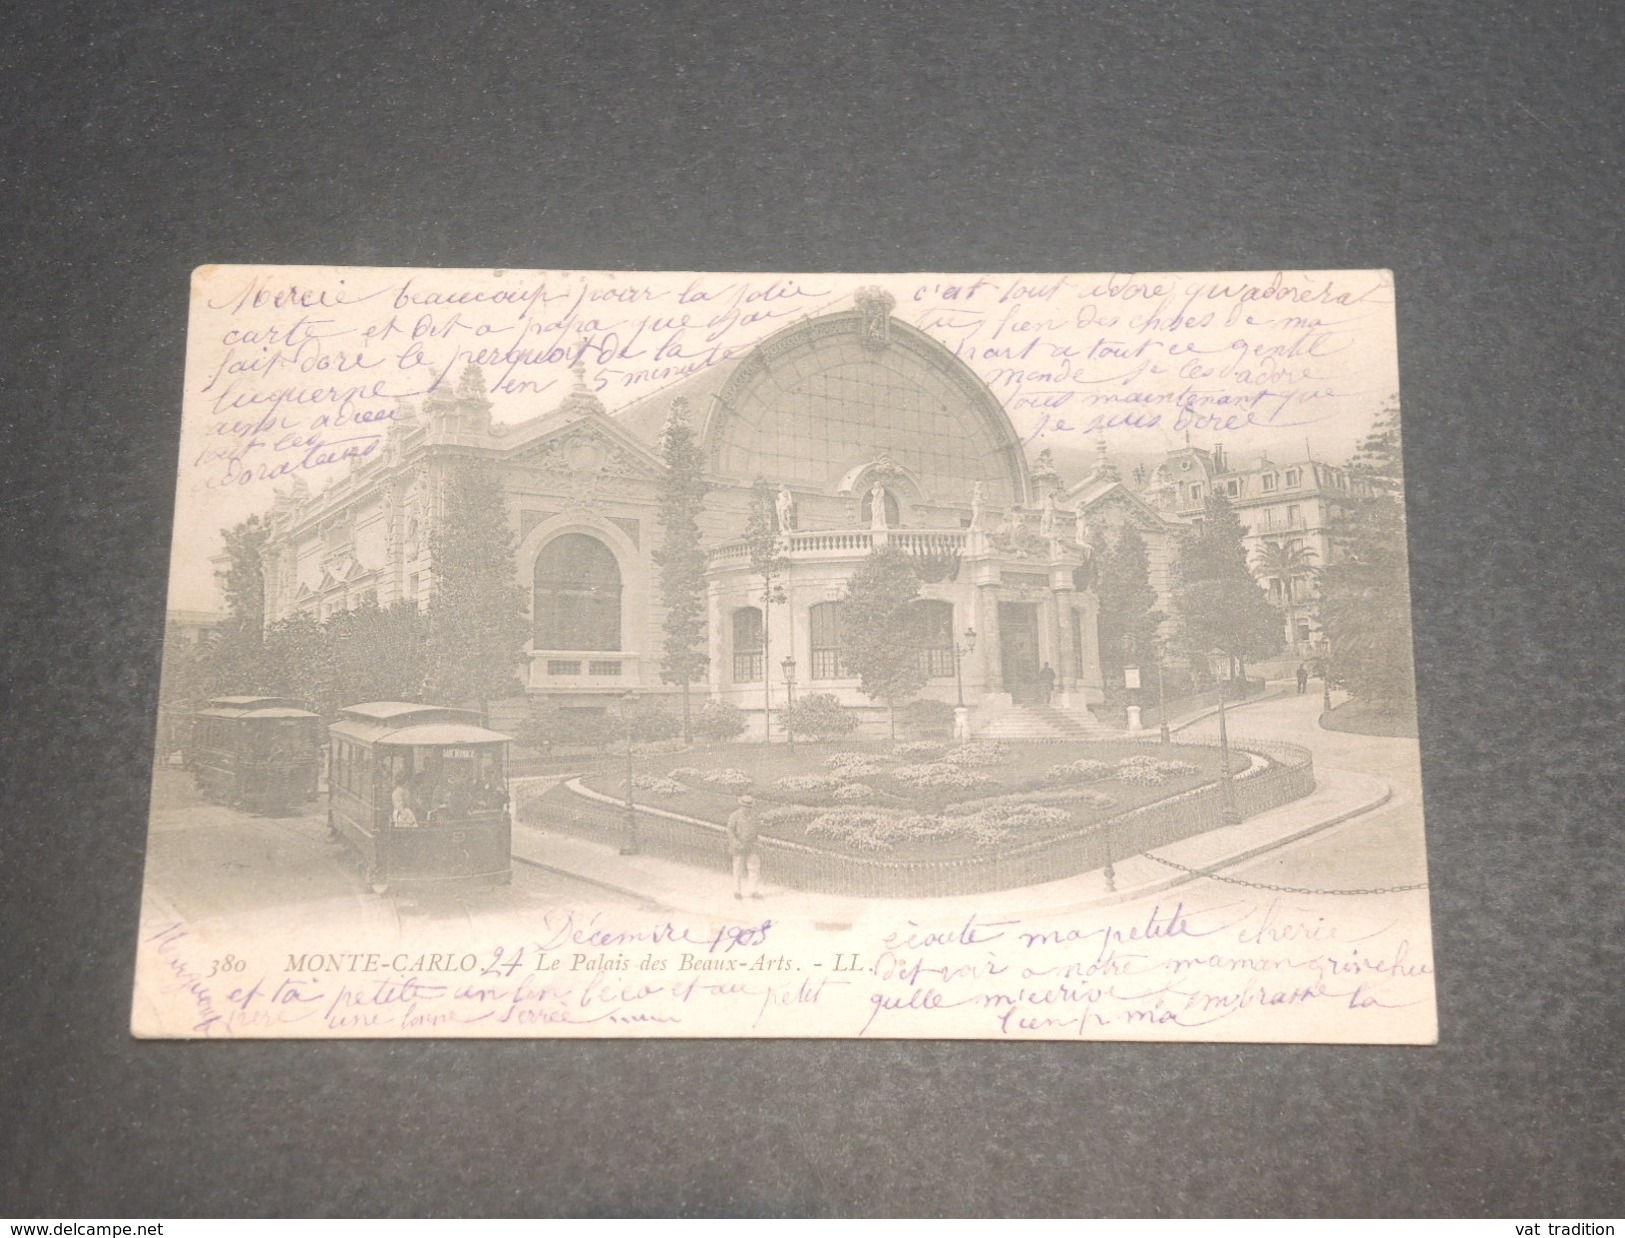 Mercie beaucoup pour la Jolie
carte et dit a papa que j'ai
fait dore le perquoit de la te
luquerne en 5 minute
ainsi adieu
tout les
doratans
c'ait tout dore qu adorerat
tu bien des choses de ma
part a tout ce gentil
monde Je les adore
tous maintenant que
Je suis dorée
Décembre 1903
24
380 MONTE-CARLO. Le Palais des Beaux-Arts. - LL.
et toi petite un bon béco et au petit
pere une bonne serrée
écoute ma petite cherie
dit voir a notre maman grincheu
qulle m'ecrive Embrasse la
bien p ma
SARL MONACO
delcampe.net
vat tradition